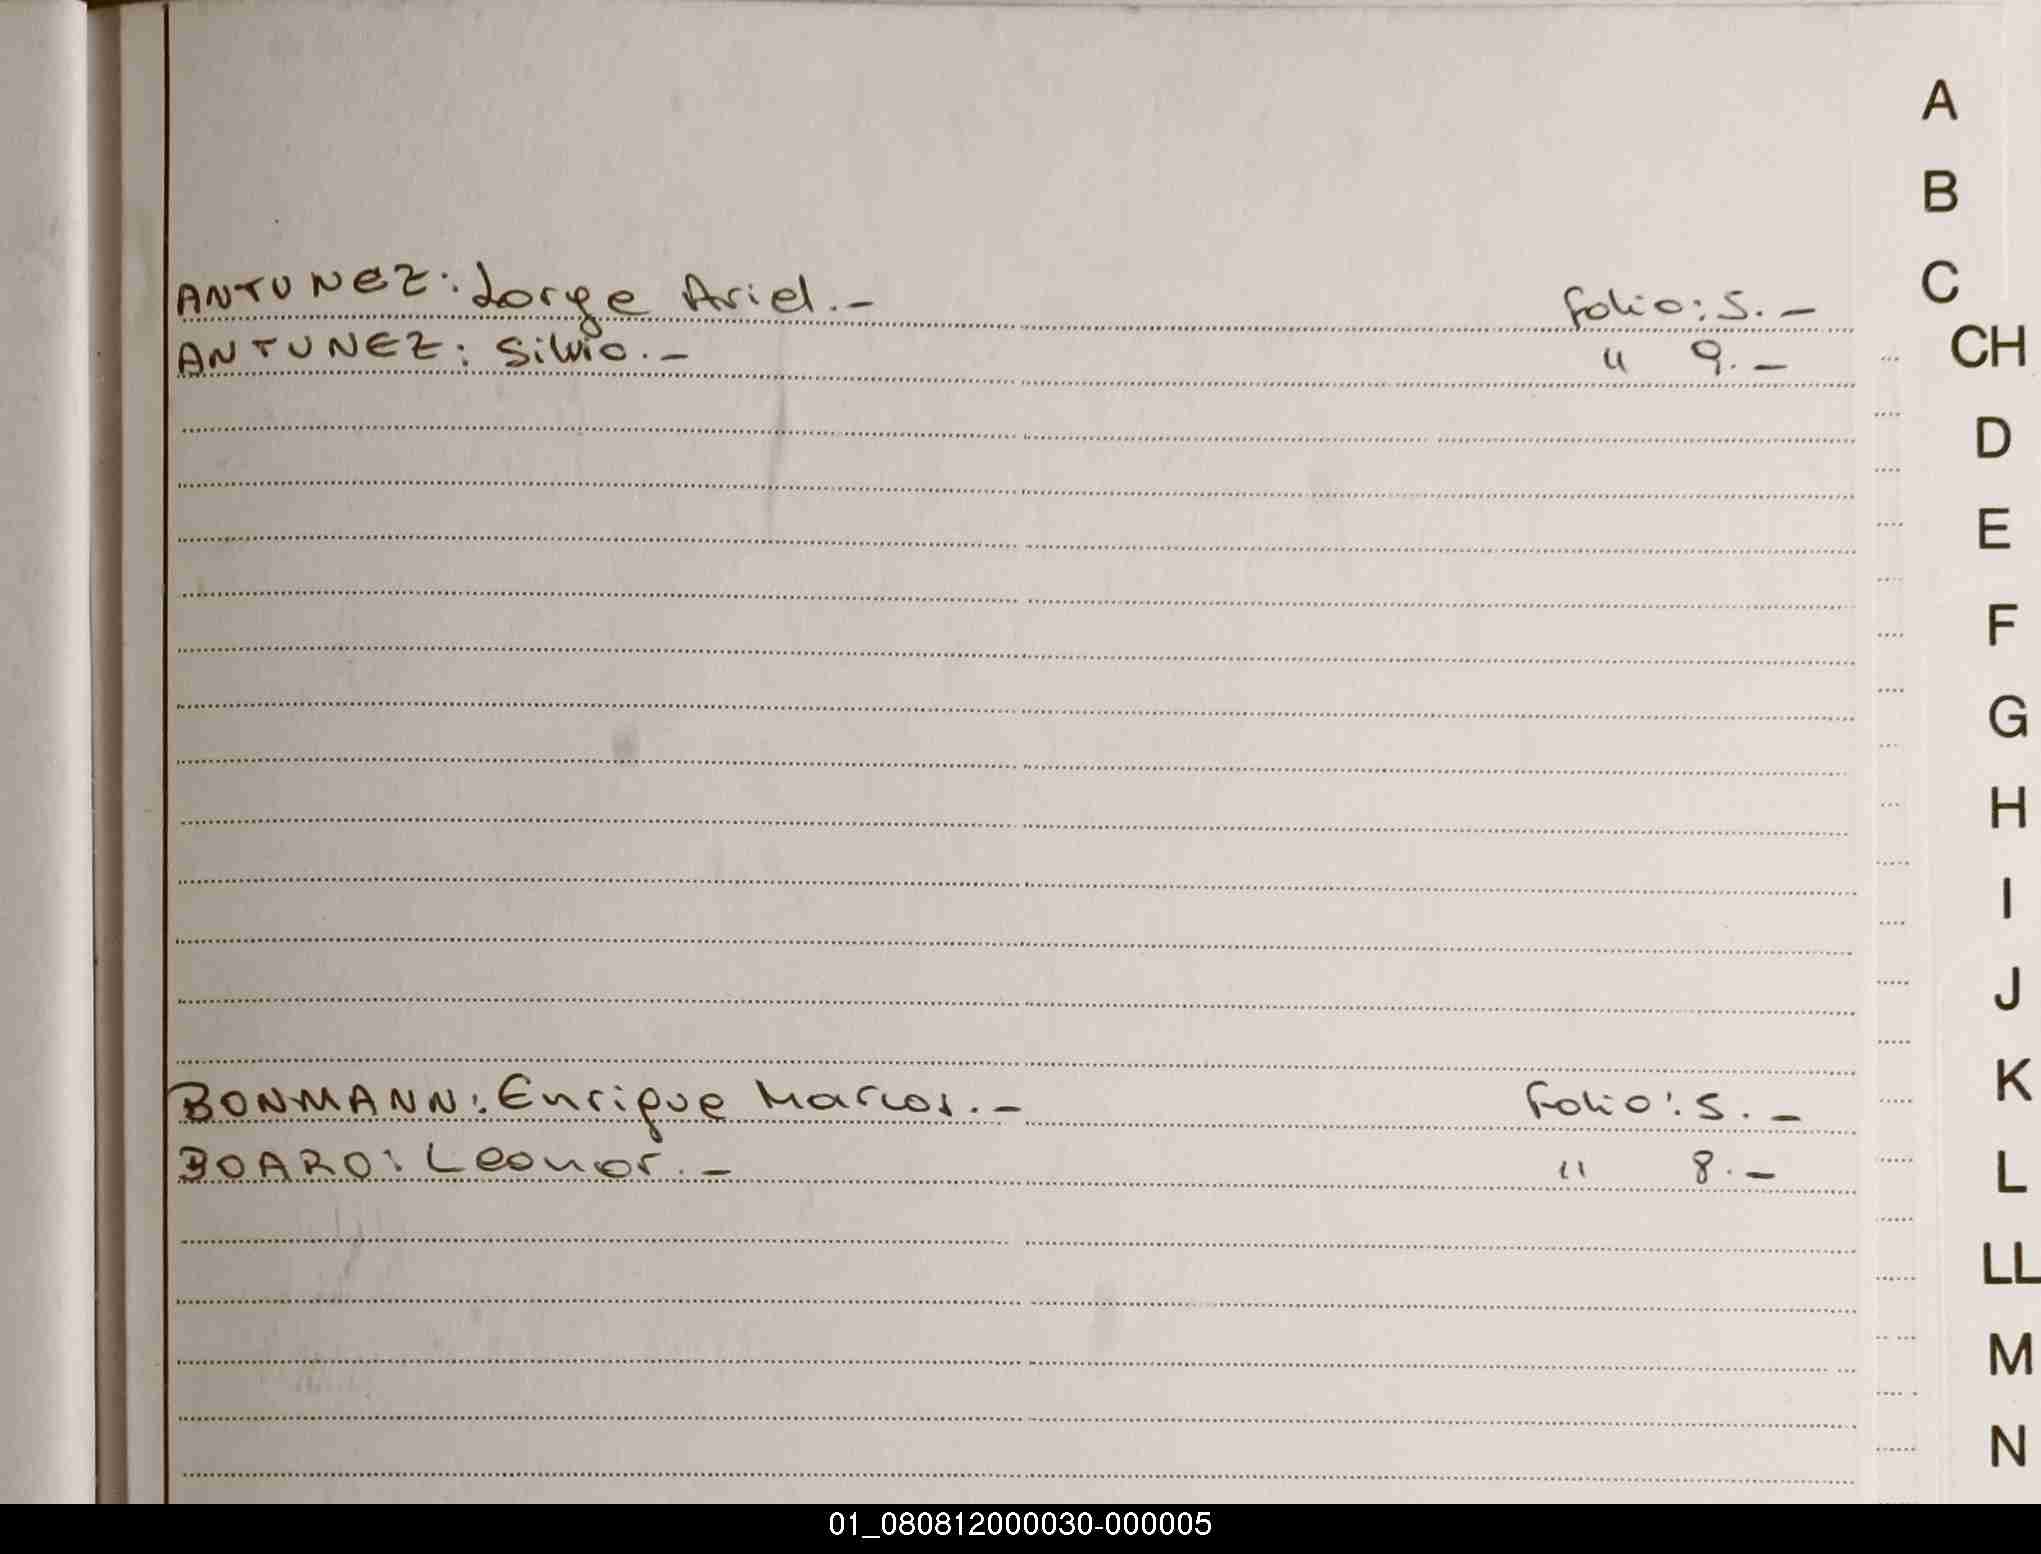 A
B
C
ANTUNEZ: Jorge Ariel.- folio: 5.-
CH
ANTUNEZ: Silvio.- " 9.-
D
E
F
G
H
I
J
K
BONMANN: Enrique Marcos.- Folio: 5.-
L
BOARO: Leonor.- " 8.-
LL
M
N
01_080812000030-000005